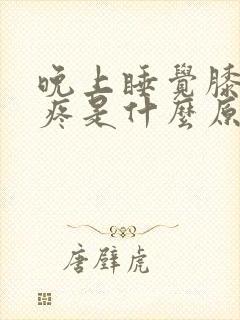 晚上睡覺膝
疼是什麼原
唐壁虎